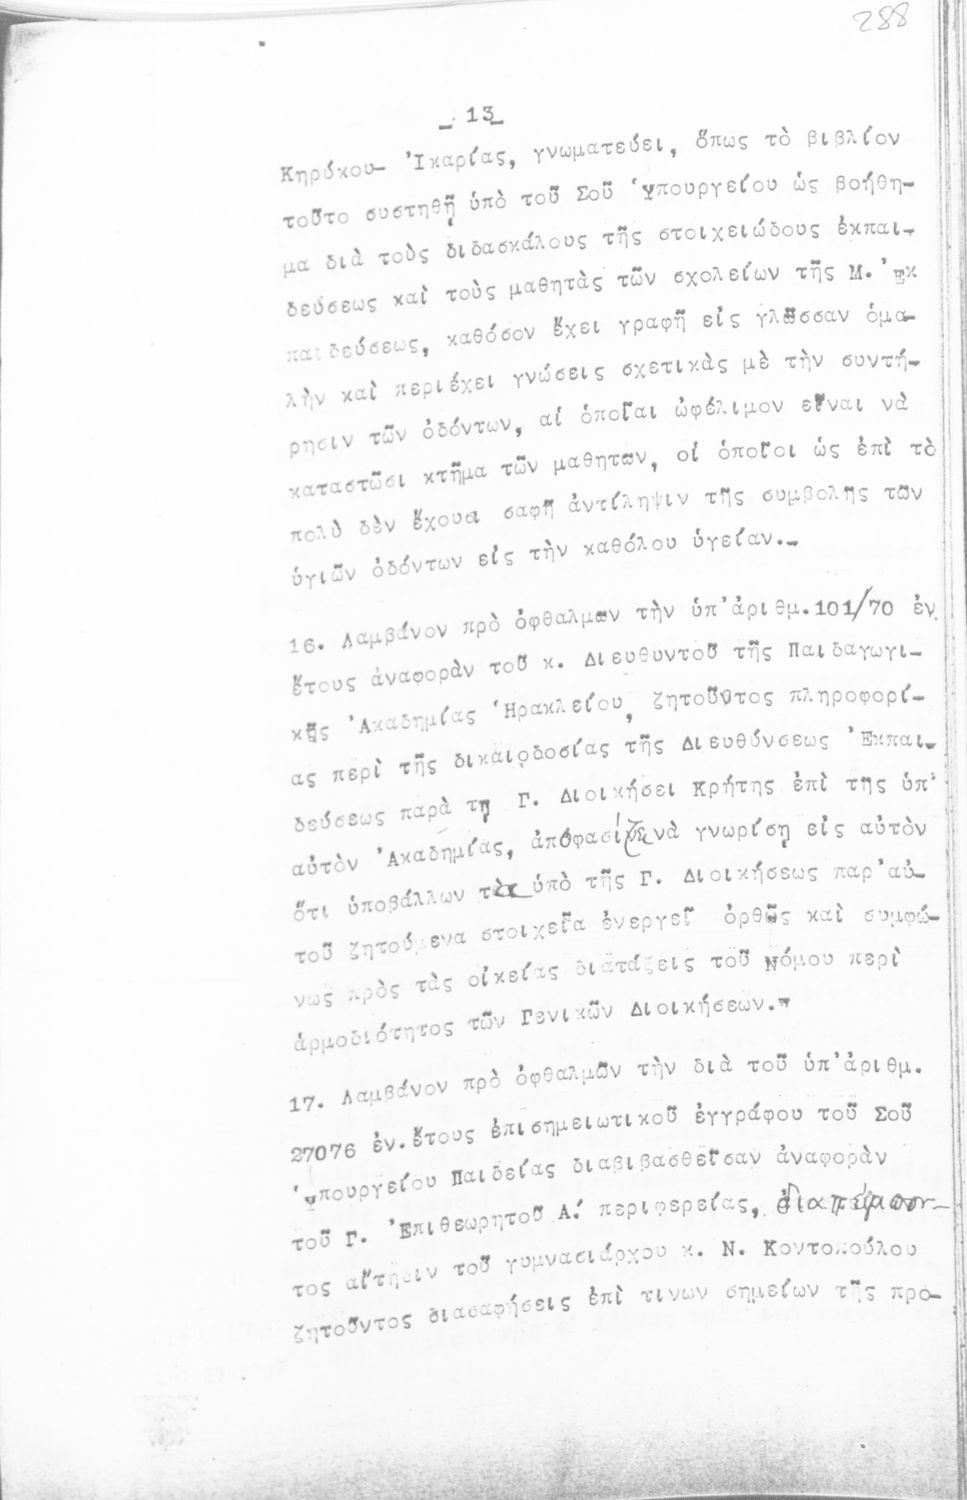 288
_ 13_
Κηρύκου- Ἰκαρίας, γνωματεύει, ὅπως τὸ βιβλίον
τοῦτο συστηθῇ ὑπὸ τοῦ Σοῦ Ὑπουργείου ὡς βοήθη-
μα διὰ τοὺς διδασκάλους τῆς στοιχειώδους ἐκπαι-
δεύσεως καὶ τοὺς μαθητὰς τῶν σχολείων τῆς Μ. Ἐκ
παιδεύσεως, καθόσον ἔχει γραφῆ εἰς γλῶσσαν ὁμα-
λὴν καὶ περιέχει γνώσεις σχετικὰς μὲ τὴν συντή-
ρησιν τῶν ὀδόντων, αἱ ὁποῖαι ὠφέλιμον εἶναι νὰ
καταστῶσι κτῆμα τῶν μαθητῶν, οἱ ὁποῖοι ὡς ἐπὶ τὸ
πολὺ δὲν ἔχουσι σαφῆ ἀντίληψιν τῆς συμβολῆς τῶν
ὑγιῶν ὀδόντων εἰς τὴν καθόλου ὑγείαν.-
16. Λαμβάνον πρὸ ὀφθαλμῶν τὴν ὑπ'ἀριθμ.101/70 ἐν.
ἔτους ἀναφορὰν τοῦ κ. Διευθυντοῦ τῆς Παιδαγωγι-
κῆς Ἀκαδημίας Ἡρακλείου, ζητοῦντος πληροφορί-
ας περὶ τῆς δικαιοδοσίας τῆς Διευθύνσεως Ἐκπαι-
δεύσεως παρὰ τῃ Γ. Διοικήσει Κρήτης ἐπὶ της ὑπ'
αὐτὸν Ἀκαδημίας, ἀποφασίζει νὰ γνωρίσῃ εἰς αὐτὸν
ὅτι ὑποβάλλων τὰ ὑπὸ τῆς Γ. Διοικήσεως παρ'αὐ-
τοῦ ζητούμενα στοιχεῖα ἐνεργεῖ ὀρθῶς καὶ συμφώ-
νως πρὸς τὰς οἰκείας διατάξεις τοῦ Νόμου περὶ
ἁρμοδιότητος τῶν Γενικῶν Διοικήσεων.-
17. Λαμβάνον πρὸ ὀφθαλμῶν τὴν διὰ τοῦ ὑπ'ἀριθμ.
27076 ἐν.ἔτους ἐπισημειωτικοῦ ἐγγράφου τοῦ Σοῦ
Ὑπουργείου Παιδείας διαβιβασθεῖσαν ἀναφορὰν
τοῦ Γ. Ἐπιθεωρητοῦ Α.' περιφερείας, διαπέμπον-
τος αἴτησιν τοῦ γυμνασιάρχου κ. Ν. Κοντοπούλου
ζητοῦντος διασαφήσεις ἐπὶ τινων σημείων τῆς προ-